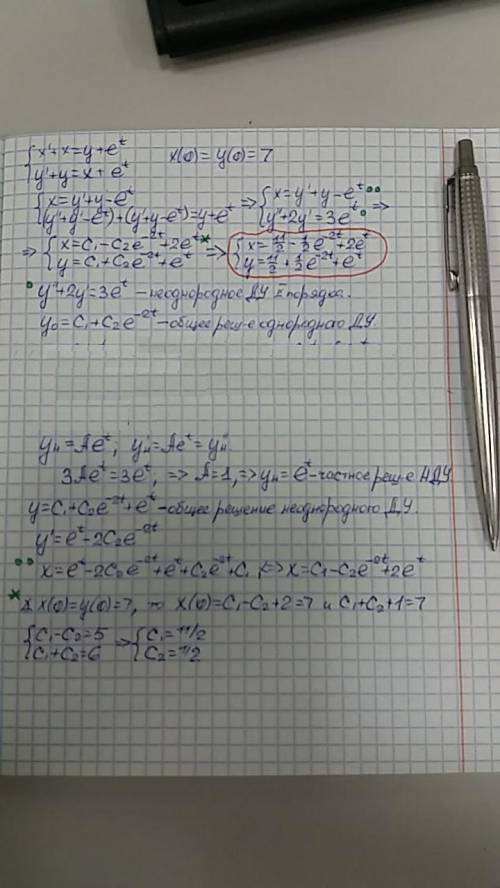 {x'+x=y+eᵗ x(0)=y(0)=7
{y'+y=x+eᵗ
{x=y'+y-eᵗ => {x=y'+y-eᵗ •• =>
{(y''+y'-eᵗ)+(y'+y-eᵗ)=y+eᵗ {y''+2y'=3eᵗ •
=> {x=C₁-C₂e⁻²ᵗ+2eᵗ * => {x=11/2-1/2e⁻²ᵗ+2eᵗ
{y=C₁+C₂e⁻²ᵗ+eᵗ {y=11/2+1/2e⁻²ᵗ+eᵗ
• y''+2y'=3eᵗ - неоднородное ДУ II порядка.
y₀=C₁+C₂e⁻²ᵗ - общее реш-е однородного ДУ.
yₙ=Aeᵗ; y'ₙ=Aeᵗ=y''ₙ
3Aeᵗ=3eᵗ, => A=1, => yₙ=eᵗ - частное реш-е НДУ
y=C₁+C₂e⁻²ᵗ+eᵗ - общее решение неоднородного ДУ.
y'=eᵗ-2C₂e⁻²ᵗ
•• x=eᵗ-2C₂e⁻²ᵗ+eᵗ+C₂e⁻²ᵗ+C₁, => x=C₁-C₂e⁻²ᵗ+2eᵗ
* x(0)=y(0)=7, то x(0)=C₁-C₂+2=7 и C₁+C₂+1=7
{C₁-C₂=5 => {C₁=11/2
{C₁+C₂=6 {C₂=1/2